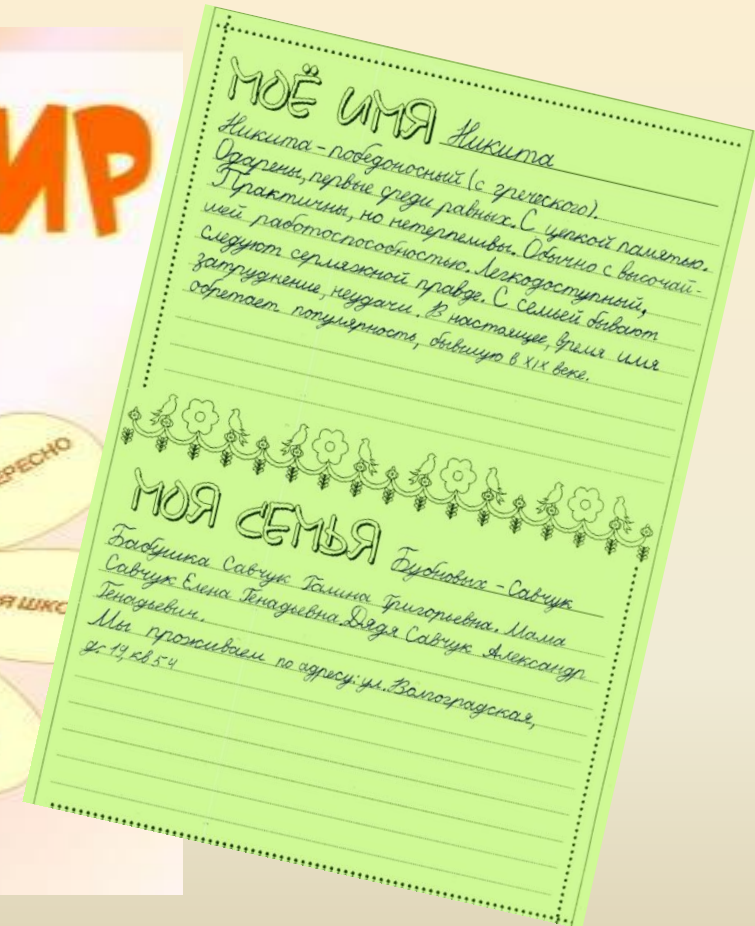 ИР
ЕРЕСНО
Я ШКО
МОЁ ИМЯ Никита
Никита - победоносный (с греческого).
Одарены, первые среди равных. С цепкой памятью.
Практичны, но нетерпеливы. Обычно с высочай-
шей работоспособностью. Легкодоступный,
следуют сермяжной правде. С семьей бывают
затруднение, неудачи. В настоящее, время имя
обретает популярность, бывшую в XIX веке.
МОЯ СЕМЬЯ Бубновых - Савчук
Бабушка Савчук Галина Григорьевна. Мама
Савчук Елена Генадьевна. Дядя Савчук Александр
Генадьевич.
Мы проживаем по адресу: ул. Волгоградская,
д. 14, кв 54